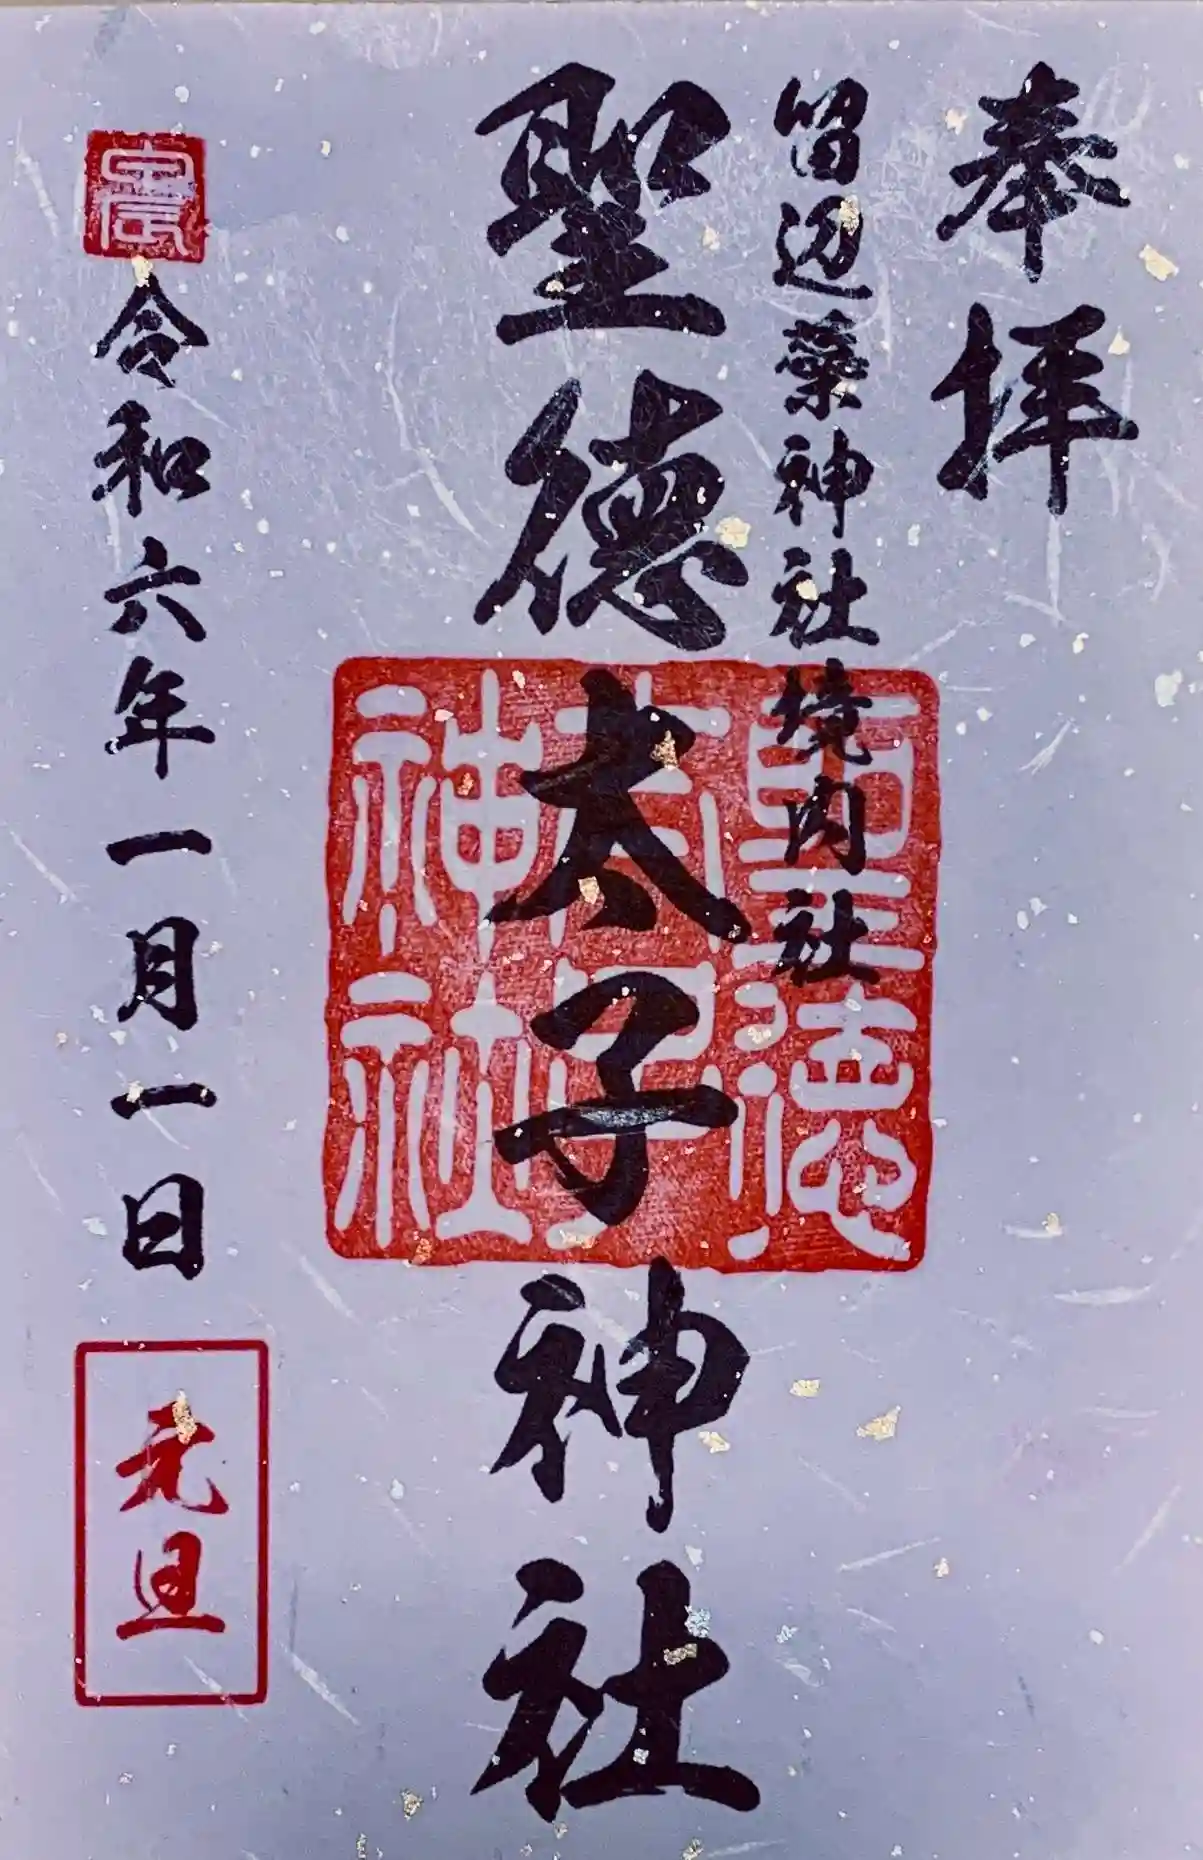 奉拝
留辺蘂神社境内社
聖徳太子神社
聖徳
太子
神社
令和六年一月一日
元旦